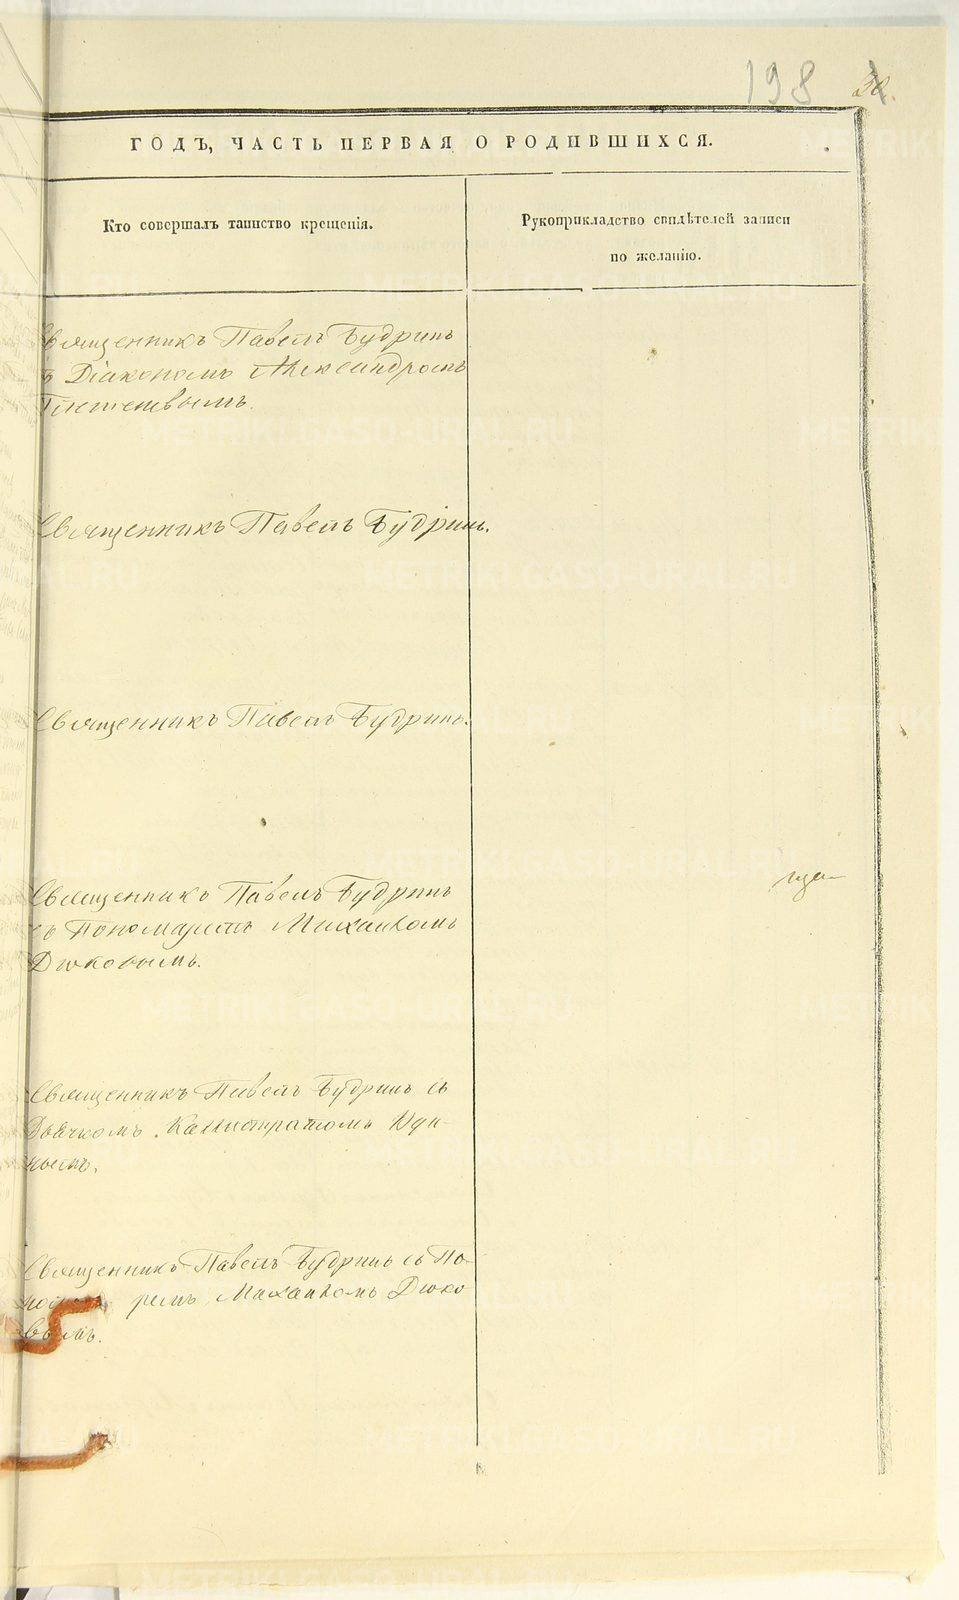 198
ГОДЪ, ЧАСТЬ ПЕРВАЯ О РОДИВШИХСЯ.
Кто совершалъ таинство крещенія.
Рукоприкладство свидѣтелей записи
по желанію.
Священникъ Павелъ Будринъ
съ Діакономъ Александромъ
Священникъ Павелъ Будринъ.
Священникъ Павелъ Будринъ.
Священникъ Павелъ Будринъ
съ Пономаремъ Михаиломъ
Дюковымъ.
Священникъ Павелъ Будринъ съ
Дьячкомъ Каллистратомъ Юди-
нымъ.
Священникъ Павелъ Будринъ съ По-
номаремъ Михаиломъ Дюко
вымъ.
METRIKI.GASO-URAL.RU